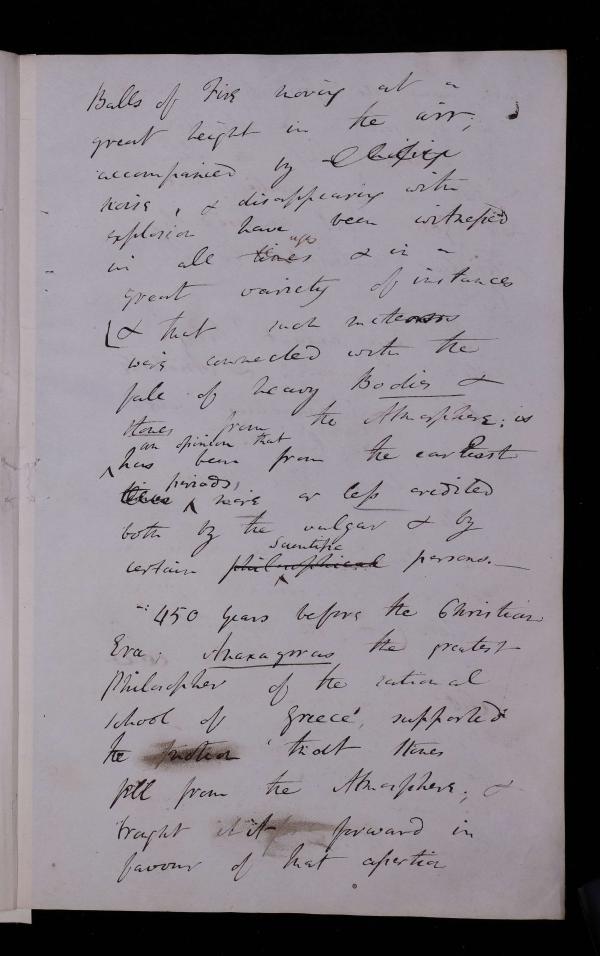 Balls of Fire moving at a
great height in the air;
accompanied by
noise, & disappearing with
explosion have been witnessed
ages
in all times & in a
great variety of instances
& that such meteors
were connected with the
fall of heavy Bodies &
stones from the Atmosphere; is
an opinion that
has been from the earliest
periods,
times more or less credited
both by the vulgar & by
Scientific
certain philosophical persons.—
450 years before the Christian
Era. Anaxagoras the greatest
Philosopher of the rational
school of Greece, supported
the notion that stones
fell from the Atmosphere; &
brought it forward in
favour of that assertion